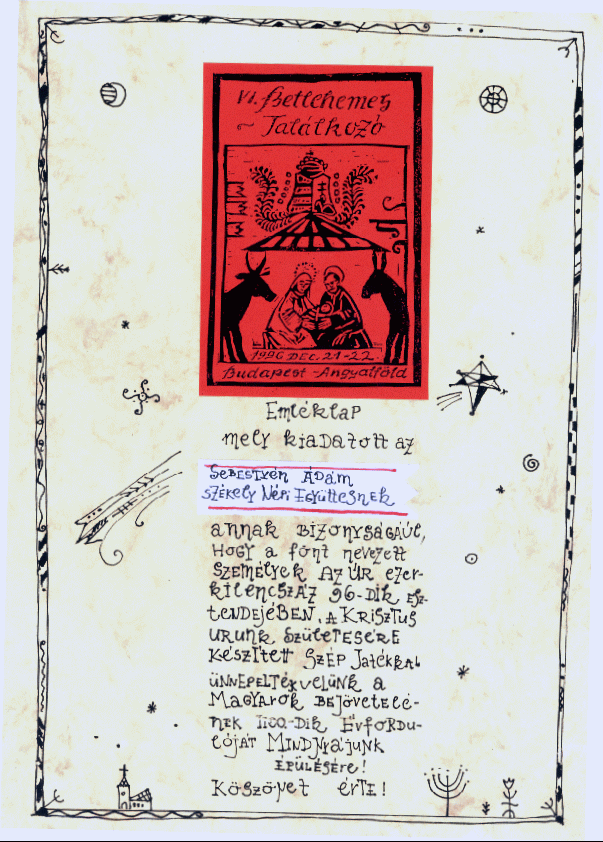 VI. Betlehemes
~ Találkozó
1996 DEC. 21-22
Budapest-Angyalföld
Emléklap
mely kiadatott az
Sebestyén Ádám
Székely Népi Együttesnek
annak bizonyságául,
hogy a fönt nevezett
személyek az Úr ezer-
kilencszáz 96-dik esz-
tendejében, a Krisztus
Urunk születésére
készített szép játékkal
ünnepelték velünk a
magyarok bejövetelé-
nek 1100-dik évfordu-
lóját mindnyájunk
épülésére!
Köszönet érte!